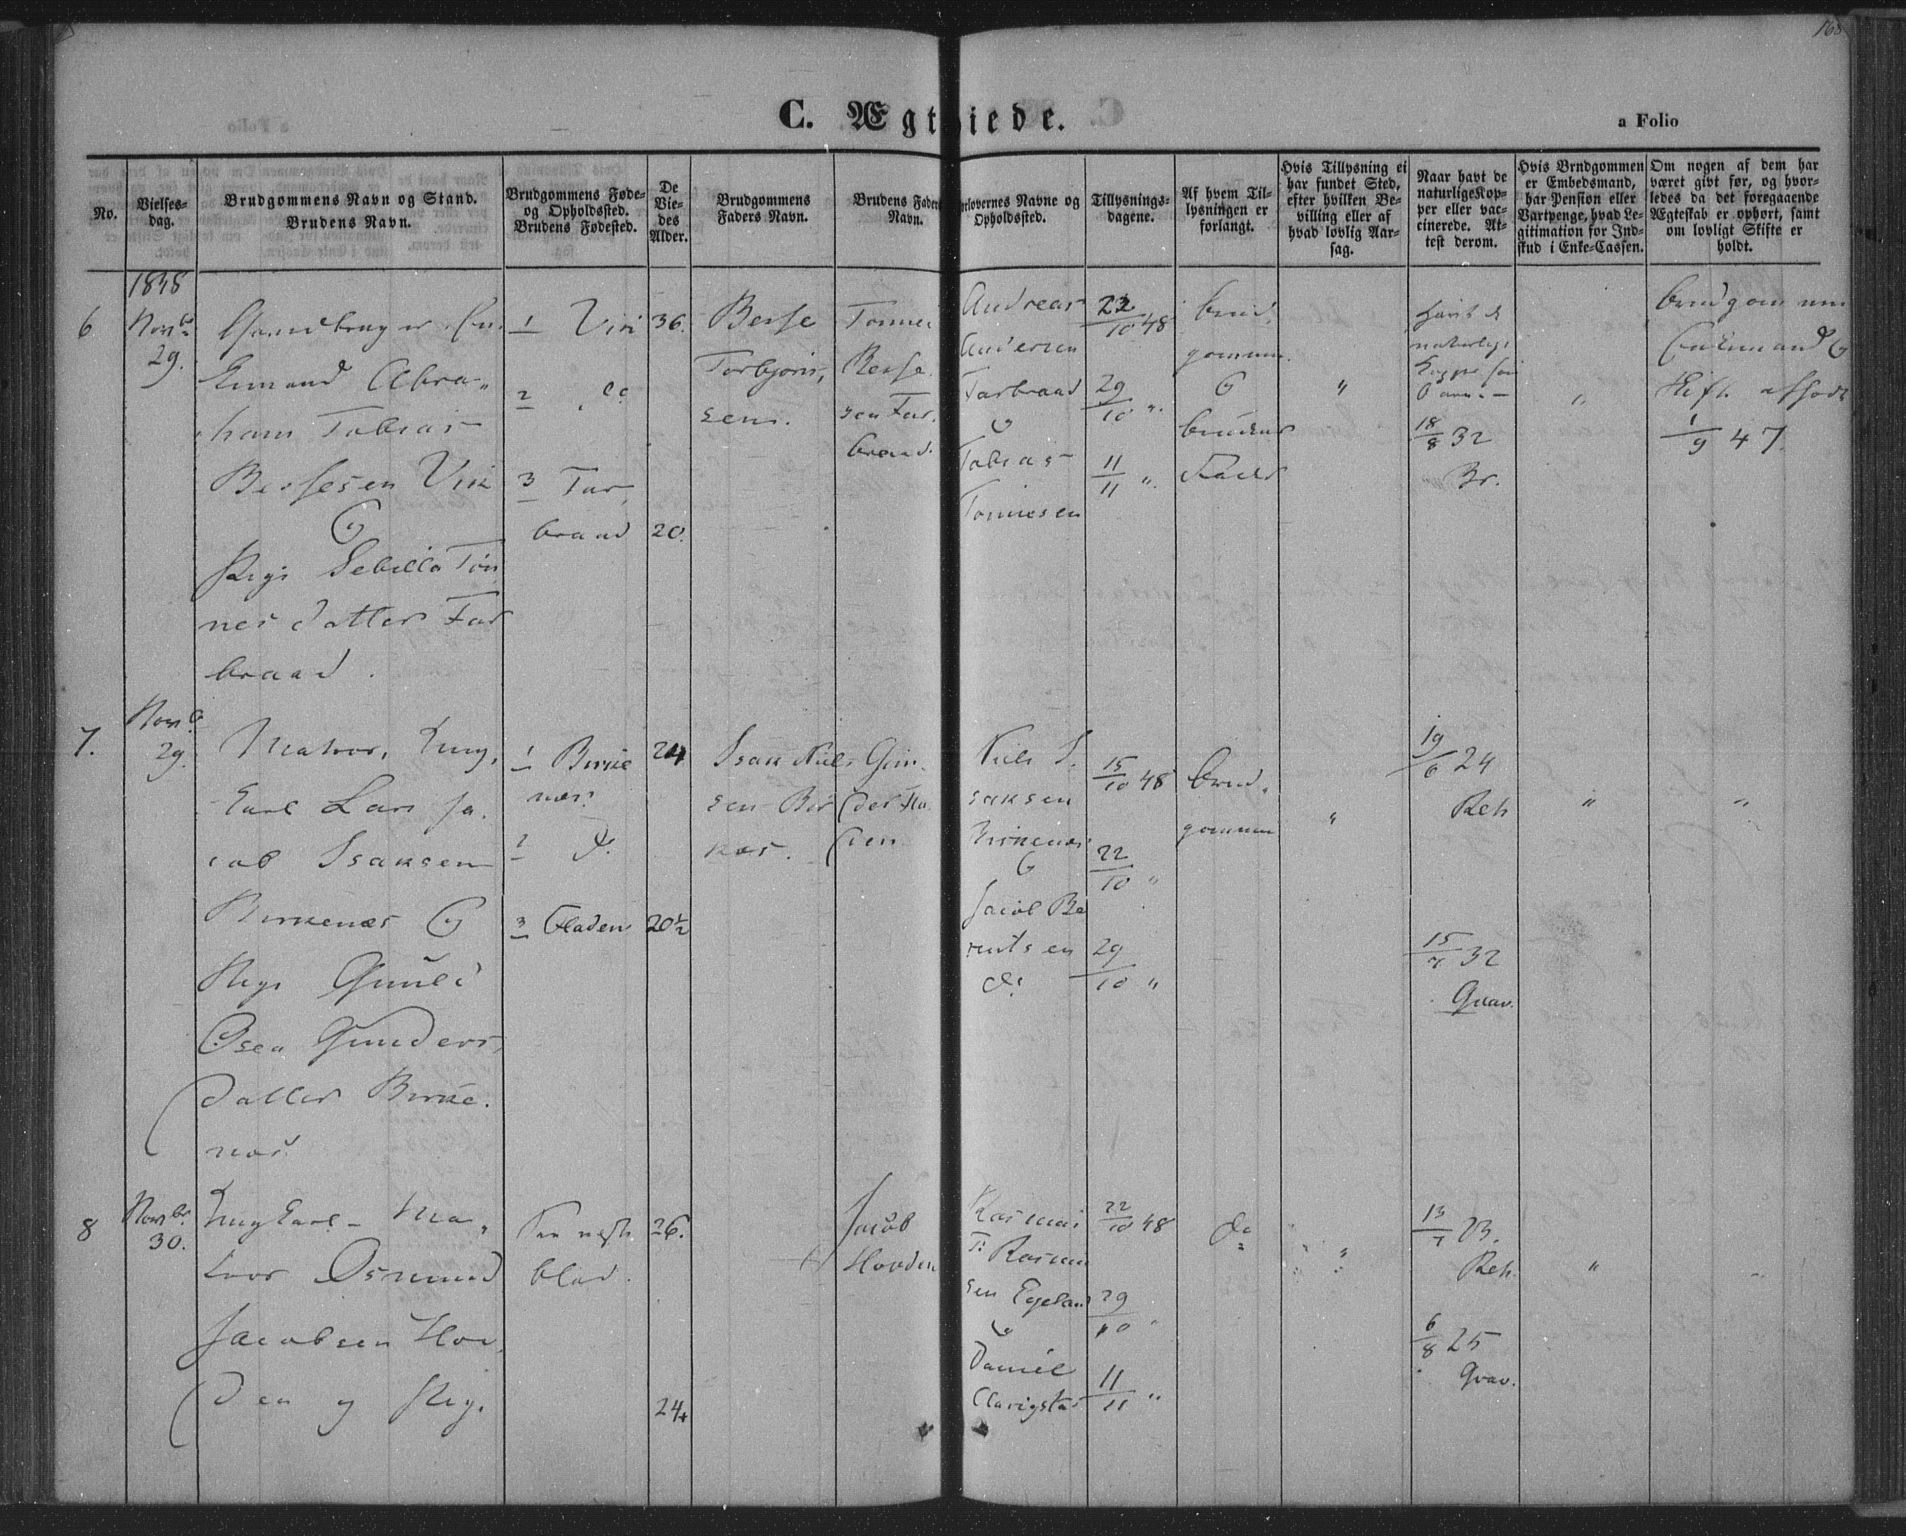 168
C. Ægteviede.
a Folio
No.
Vielses-
dag.
Brudgommens Navn og Stand.
Brudens Navn.
Brudgommens Føde-
og Opholdssted.
Brudens Fødested.
De
Vie-
des
Alder.
Brudgommens
Faders Navn.
Brudens Faders
Navn.
Forlovernes Navne og
Opholdssted.
Tillysnings-
dagene.
Af hvem Til-
lysningen er
forlangt.
Hvis Tillysning ei
har fundet Sted,
efter hvilken Be-
villing eller af
hvad lovlig Aar-
sag.
Naar havt de
naturlige Kop-
per eller vac-
cinerede. At-
test derom.
Hvis Brudgommen
er Embedsmand,
har Pension eller
Vartpenge, hvad Le-
gitimation for Ind-
skud i Enke-Cassen.
Om nogen af dem har
været givt før, og hvor-
ledes da det foregaaende
Ægteskab er ophørt, samt
om lovligt Skifte er
holdt.
1848
6
Novbr
29.
Gaardbruger En-
kemand Abra-
ham Tobias
Bessesen Viri
&
Pige Sebilla Tøn
nesdatter Far
braad.
1 Viri
2 do
3 Far
braad
36.
20.
Besse
Torbjøns,
sen.
Tønnes
Besse
sen Far,
braad.
Andreas
Andersen
Farbraad
&
Tobias
Tønnesen
22/10 48
29/10 "
11/11 "
brud,
gommen.
&
brudens
Fader
"
havt de
naturlige
Kopper som
Barn. -
18/8 32
Br.
"
brudgommen
Enkemand &
Skifte afholdt
1/9 47.
7.
Novb
29.
Matros, Ung,
Karl Lars Ja-
cob Isaksen
Birkenæs &
Pige Gunild
Osea Gunders,
datter Birke-
næs.
1 Birke
næs
2 do.
3 Fladen
24
20½
Isak Niel
sen Bir
kæs.
Gun-
der Fla-
den
Niels I-
saksen
Birkenæs
&
Jacob Be
rntsen
do
15/10 48
22/10 "
29/10 "
brud-
gommen
"
19/6 24
Reh
15/7 32
Grav.
"
"
8
Novbr.
30.
Ung Karl - Ma-
tros Osmund
Jacobsen Hov,
den og Pige
Paa næste
blad.
26.
24
Jacob
Hovden
Rasmus
T: Rasmu
sen Egeland
&
Daniel
Clarigstad
22/10 48
29/10 "
11/11 "
do
"
13/7 23.
Reh.
6/8 25
Grav.
"